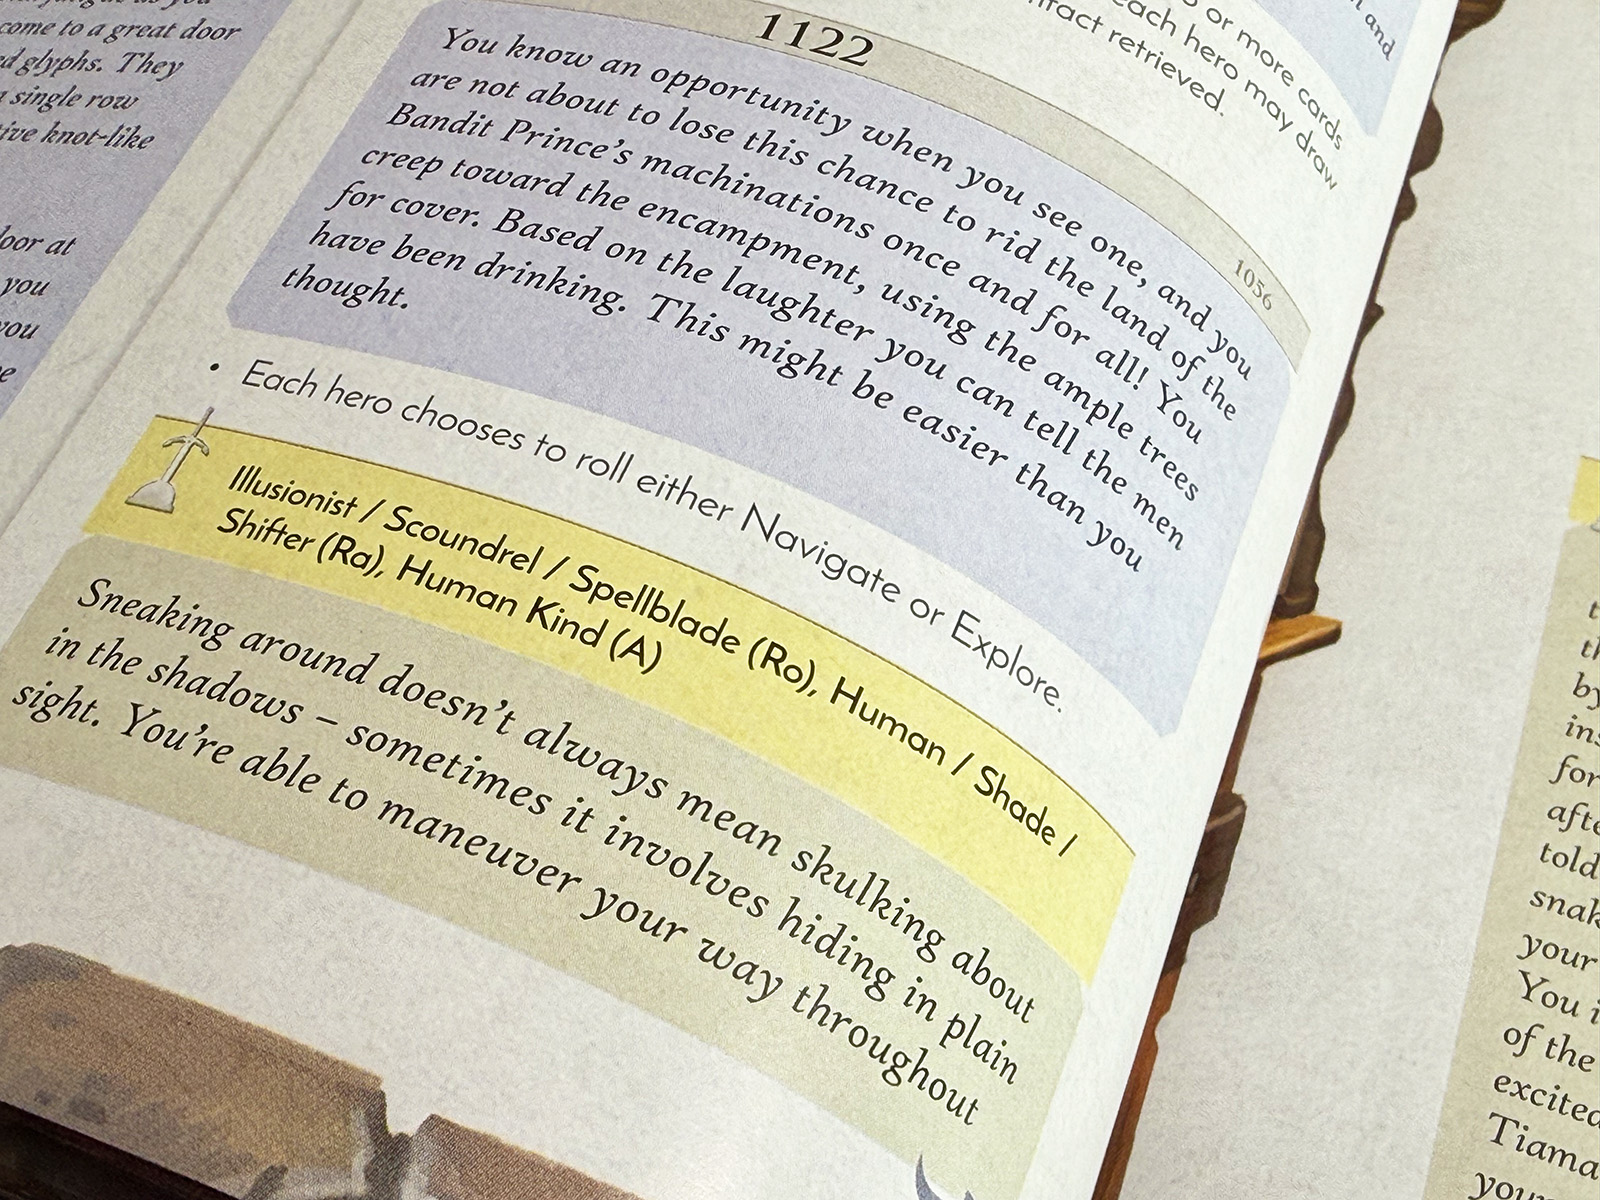 come to a great door
glyphs. They
a single row
knot-like
door at
you
you
or more cards
each hero may draw
retrieved.
and
1122
1056
You know an opportunity when you see one, and you
are not about to lose this chance to rid the land of the
Bandit Prince's machinations once and for all! You
creep toward the encampment, using the ample trees
for cover. Based on the laughter you can tell the men
have been drinking. This might be easier than you
thought.
• Each hero chooses to roll either Navigate or Explore.
Illusionist / Scoundrel / Spellblade (Ro), Human / Shade /
Shifter (Ra), Human Kind (A)
Sneaking around doesn't always mean skulking about
in the shadows – sometimes it involves hiding in plain
sight. You're able to maneuver your way throughout
by
for
told
your
You
of the